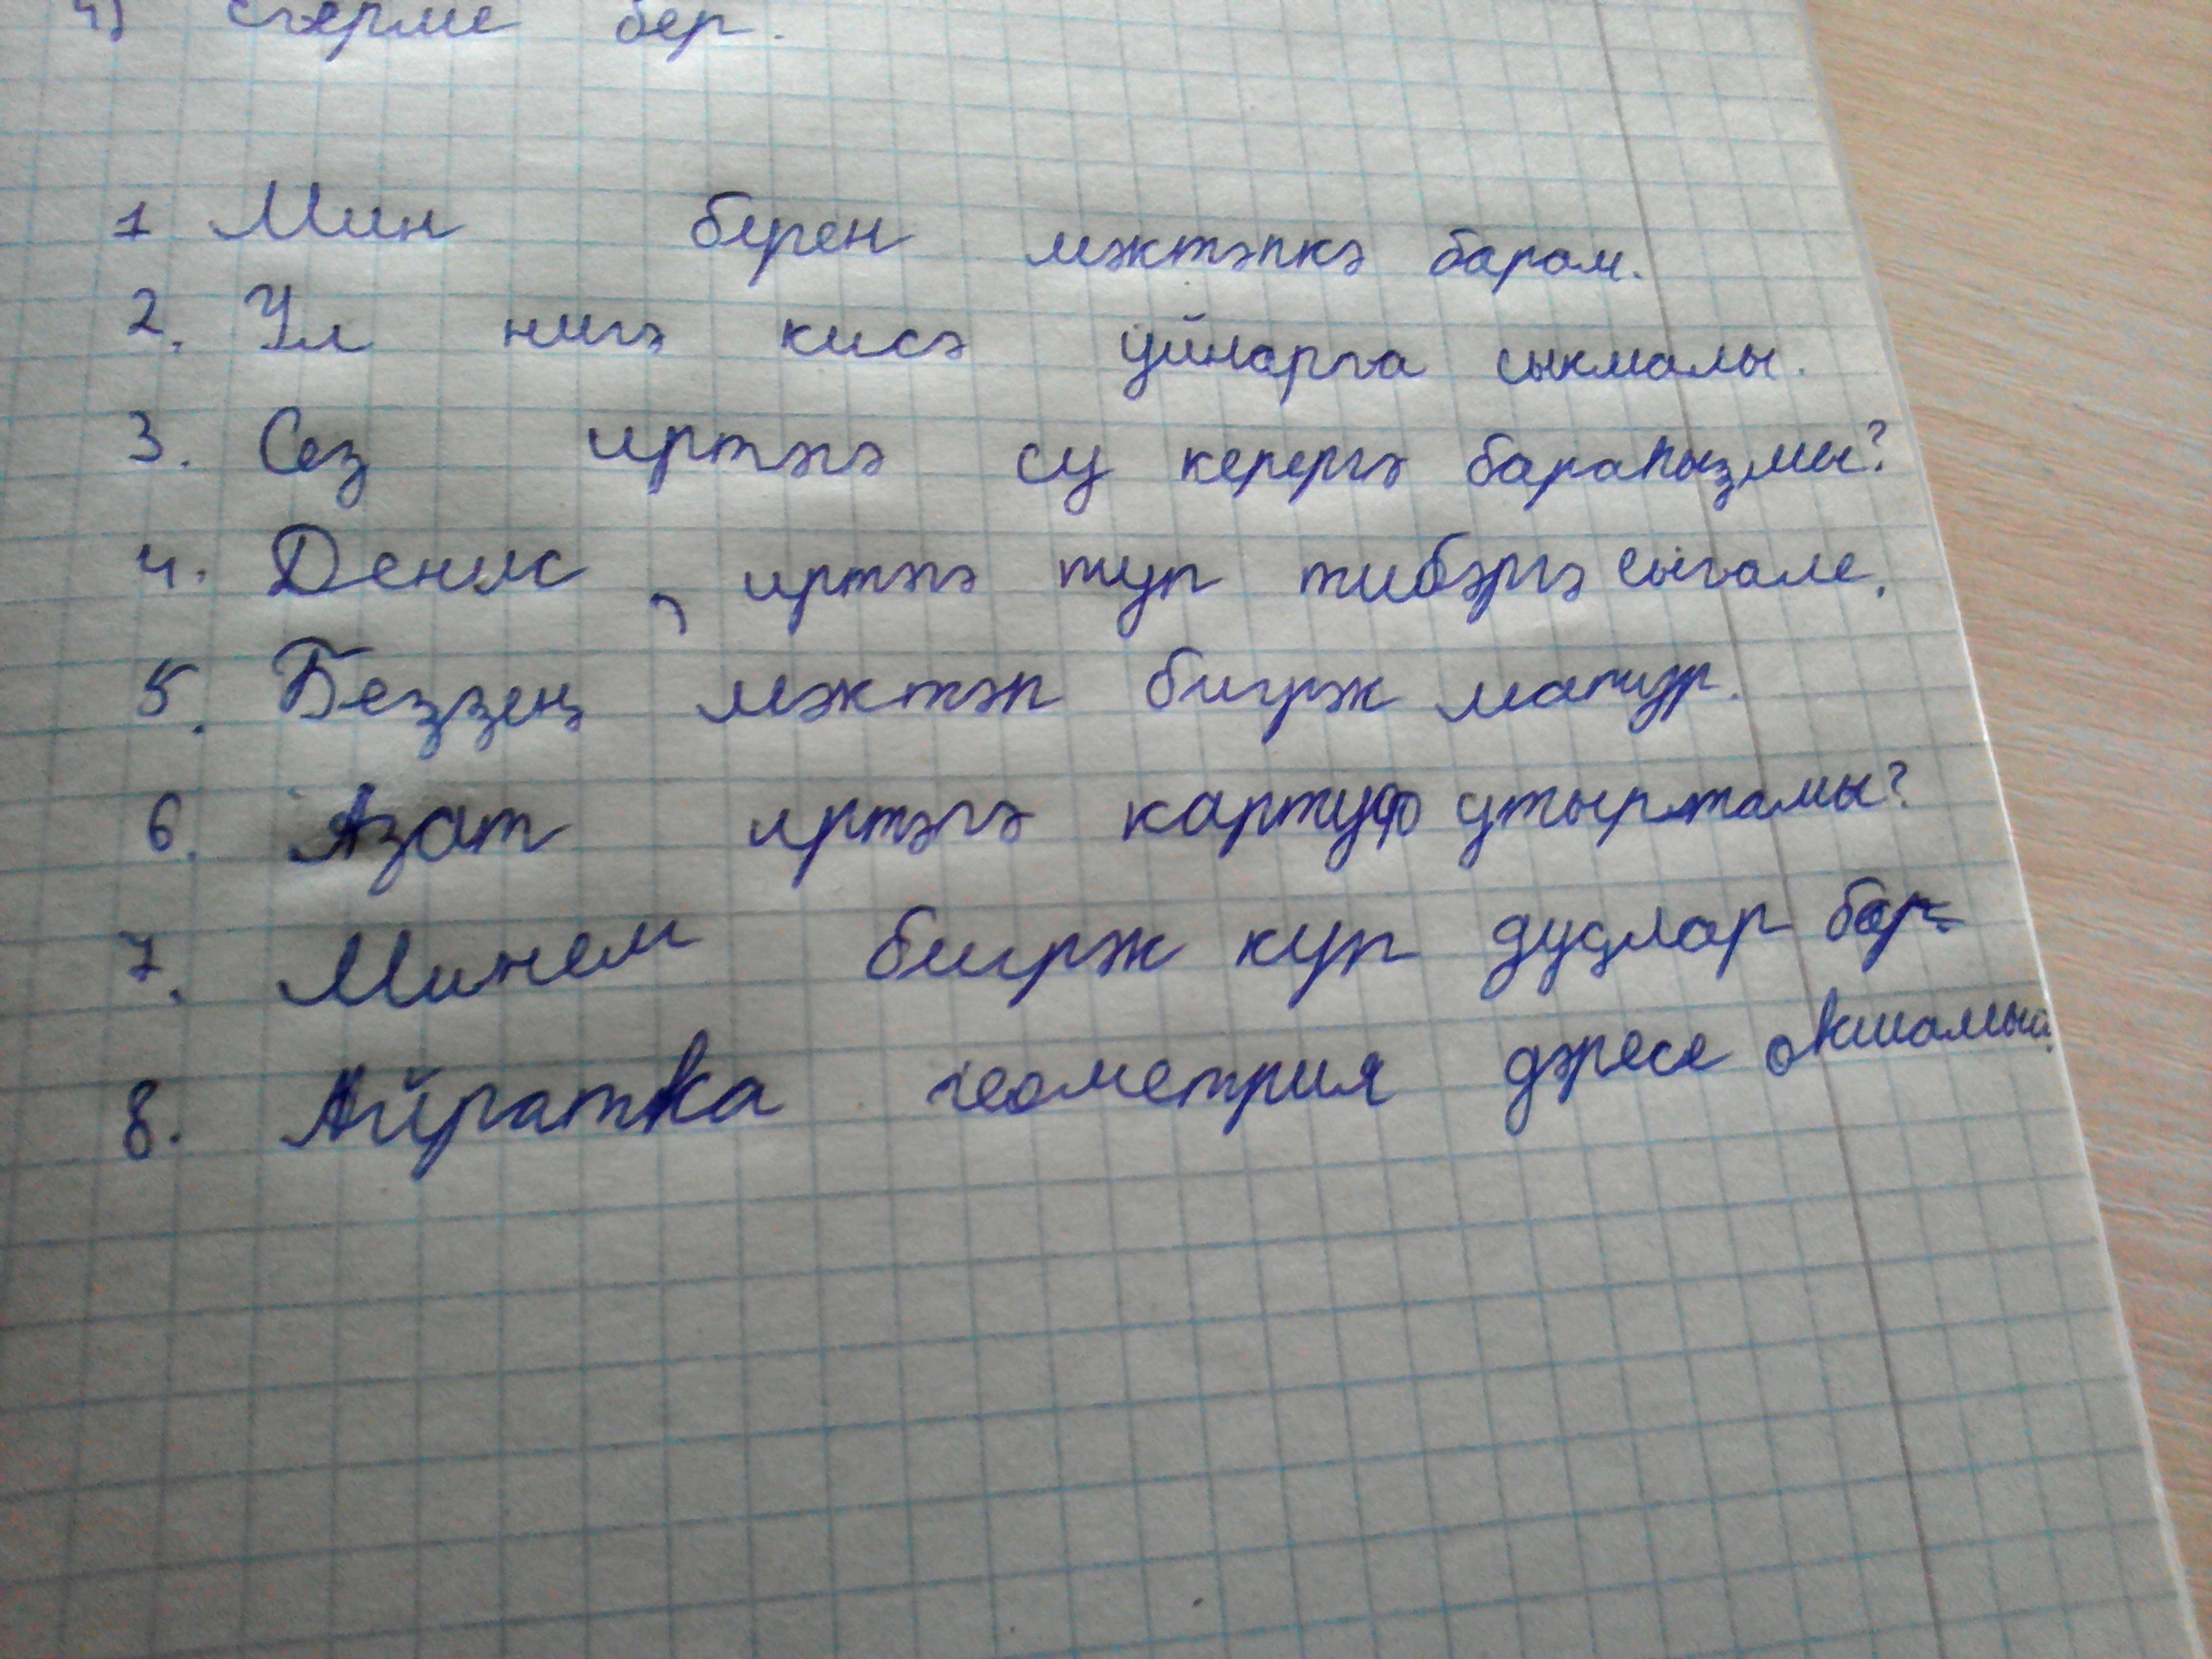 4) егерме бер.
1 Мин бөгөн мәктәпкә барам.
2. Ул нигә кисә уйнарга сыкмалы.
3. Сез иртәгә су керергә бараһыҙмы?
4. Денис, иртәгә туп тибәргә сыгале.
5. Беҙҙең мәктәп бигрәк матур.
6. Азат иртәгә картуф утыртамы?
7. Минем бигрәк куп дуҫлар бар.
8. Айратка геометрия дәресе окшамый.